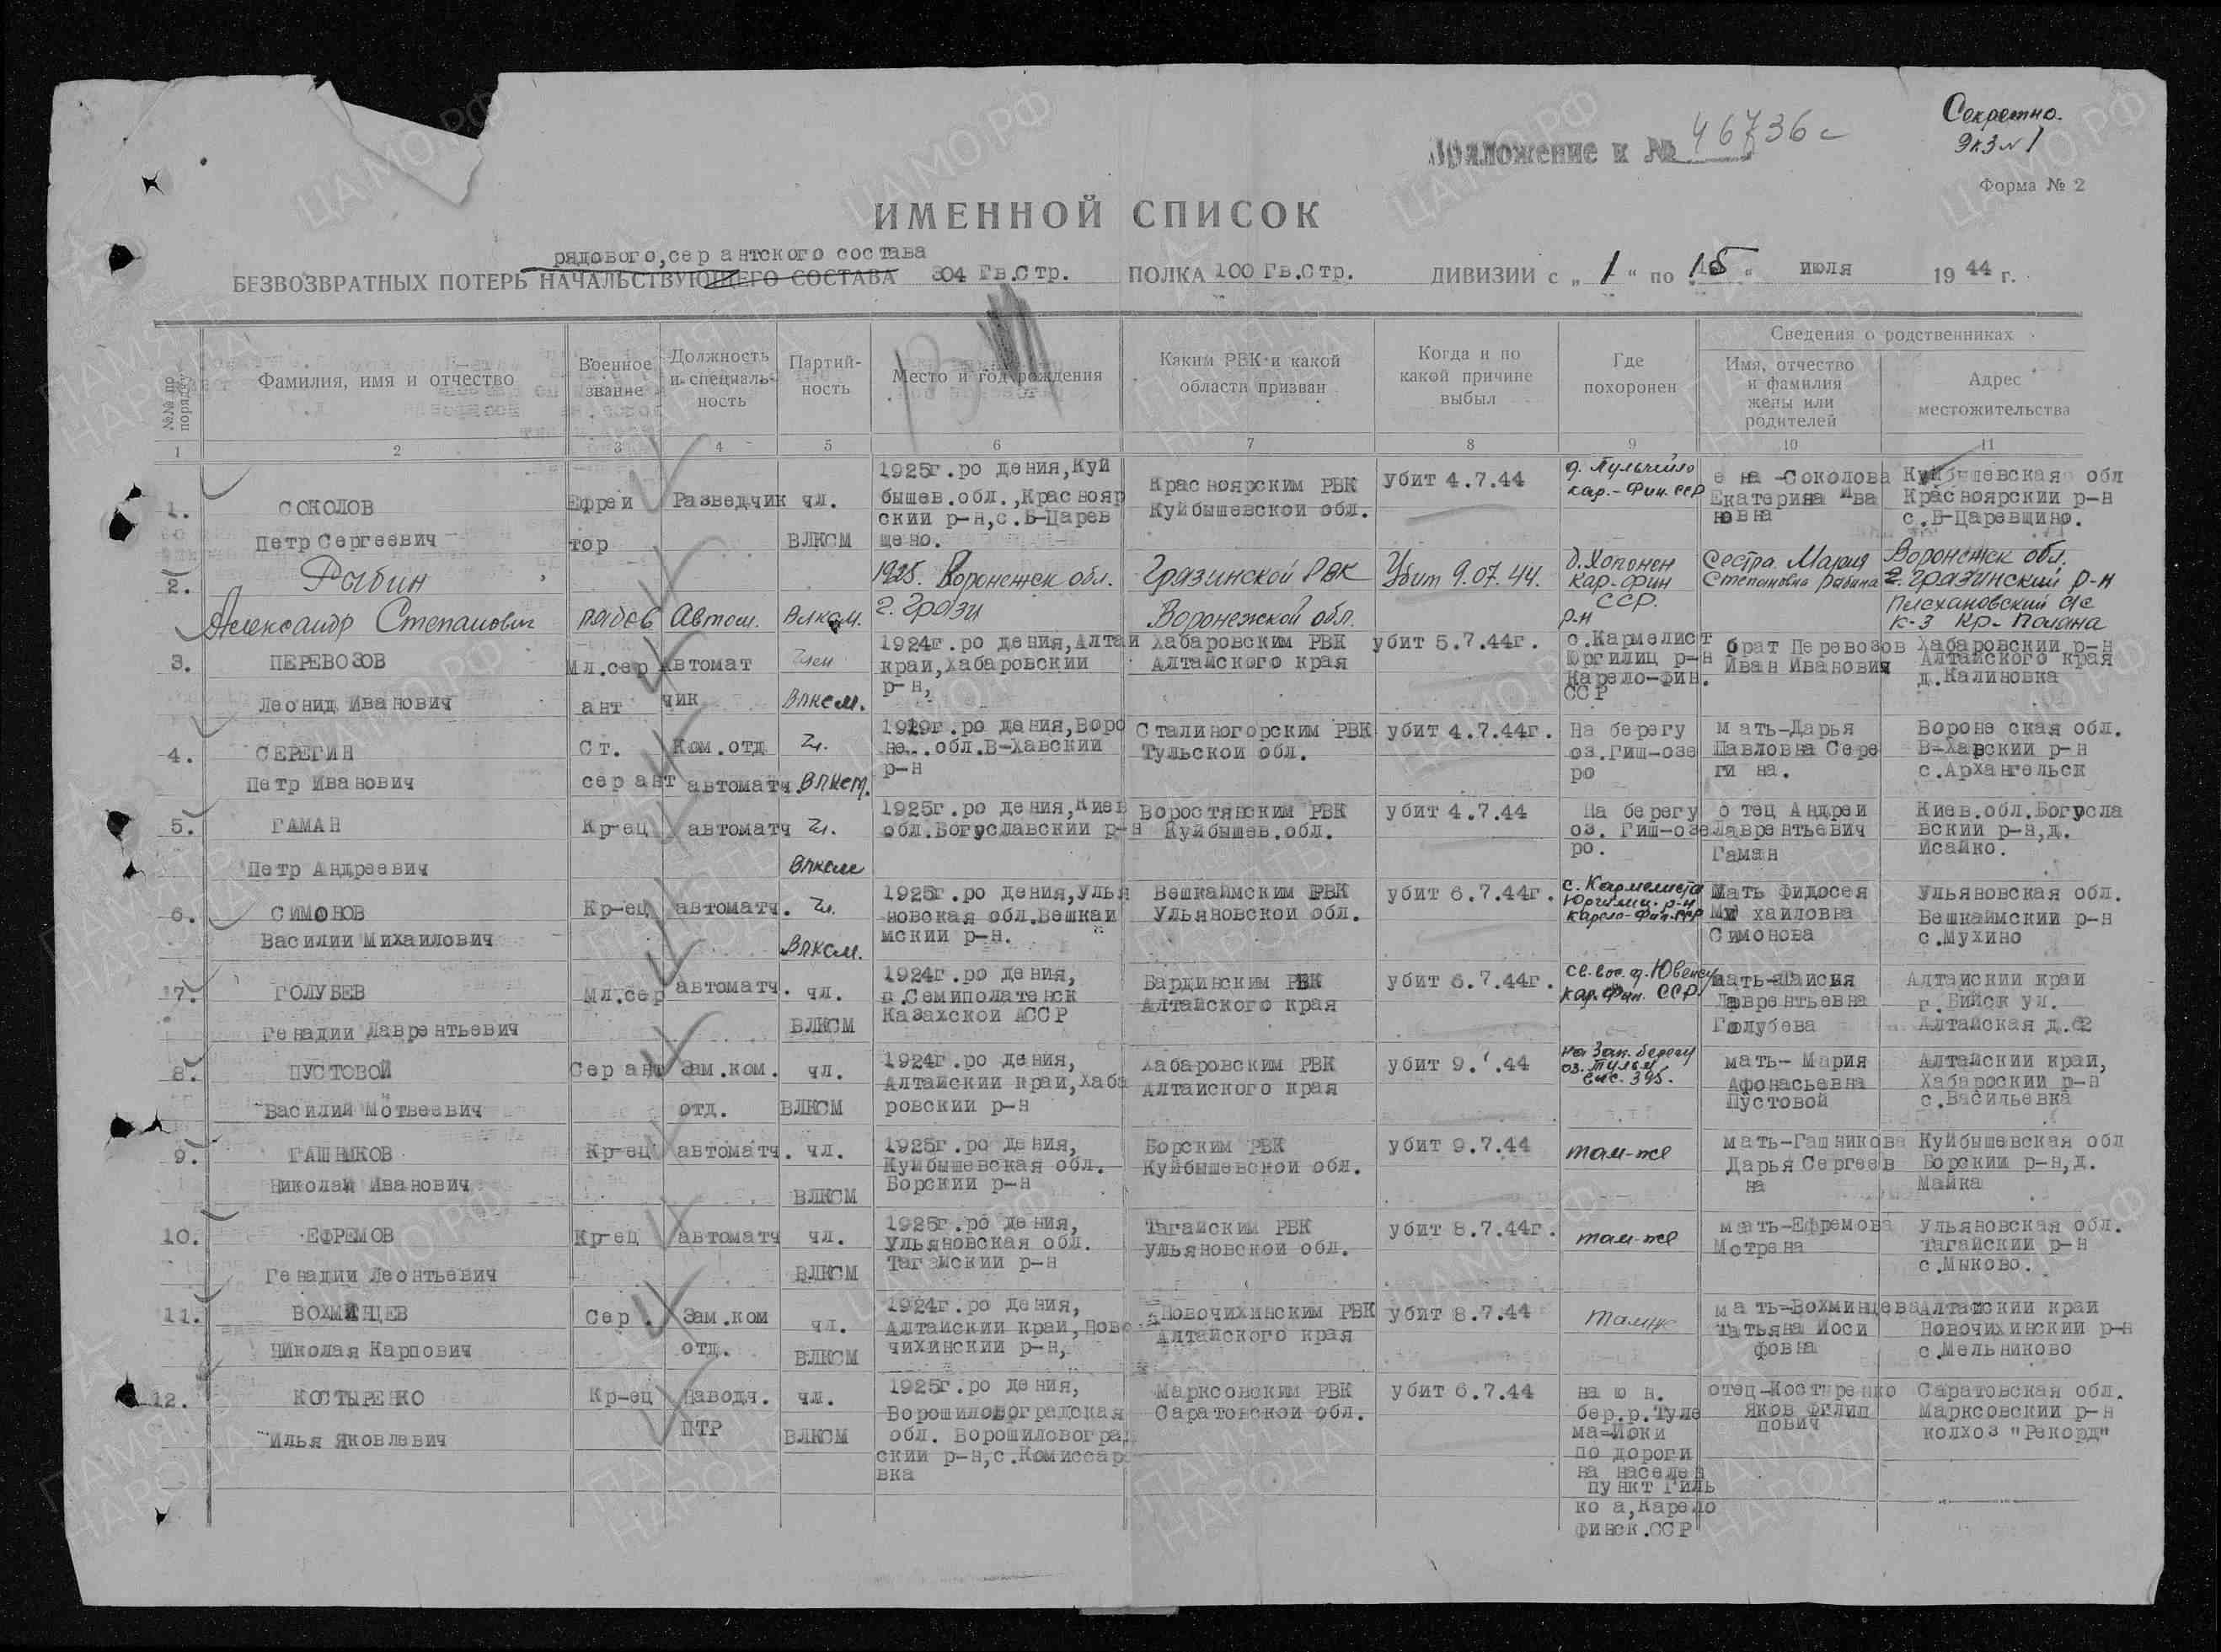 Секретно.
Экз № 1
Приложение к № 46736с
Форма № 2
ИМЕННОЙ СПИСОК
рядового,сер антского состава
БЕЗВОЗВРАТНЫХ ПОТЕРЬ НАЧАЛЬСТВУЮЩЕГО СОСТАВА 304 Гв.Стр. ПОЛКА 100 Гв.Стр. ДИВИЗИИ с „1“ по 15 “ июля 1944 г.
№№ по порядку
Фамилия, имя и отчество
Военное звание
Должность и специальность
Партий-
ность
Место и год рождения
Каким РВК и какой
области призван
Когда и по
какой причине
выбыл
Где
похоронен
Сведения о родственниках
Имя, отчество
и фамилия
жены или
родителей
Адрес
местожительства
1 2 3 4 5 6 7 8 9 10 11
1. СОКОЛОВ
Петр Сергеевич
Ефрей
тор
Разведчик
чл.
ВЛКСМ
1925г.ро дения,Куй
бышев.обл.,Краснояр
ский р-н,с.Б-Царев
щено.
Красноярским РВК
Куйбышевской обл.
убит 4.7.44
кар.-Фин.ССР
е на -Соколова
Екатерина Ива
новна
Куйбышевская обл
Красноярский р-н
с.Б-Царевщино.
2. Рыбин
Александр Степанович
Автом.
Влксм.
1925. Воронежск обл.
г. Грязи
Грязинской РВК
Воронежкой обл.
Убит 9.07.44.
д.Хопонен
Кар-фин
ССР.
р-н
Сестра Мария
Степановна Рыбина
Воронежск обл.
г. Грязинский р-н
Плехановский с/с
к-з Кр- Поляна
3. ПЕРЕВОЗОВ
Леонид Иванович
Мл.сер
ант
автомат
чик
член
Влксм.
1924г.ро дения,Алтай
край,Хабаровский
р-н,
Хабаровским РВК
Алтайского края
убит 5.7.44г.
с.Кармелист
Юргилиц р-н
Карело-фин.
ССР
брат Перевозов
Иван Иванович
Хабаровский р-н
Алтайского края
д.Калиновка
4. СЕРЕГИН
Петр Иванович
Ст.
сер ант
Ком.отд
автоматч.
Чл.
Влксм.
1919г.ро дения,Воро
не...обл.В-Хавский
р-н
Сталиногорским РВК
Тульской обл.
убит 4.7.44г.
На берегу
оз.Гиш-озе
ро
мать-Дарья
Павловна Сере
ги на.
Вороне ская обл.
В-Хавский р-н
с.Архангельск
5. ГАМАН
Петр Андреевич
Кр-ец
автоматч
Чл.
Влксм
1925г.ро дения,Киев
обл.Богуславский р-н
Воростянским РВК
Куйбышев.обл.
убит 4.7.44
На берегу
оз. Гиш-озе
ро.
отец Андреи
Лаврентьевич
Гаман
Киев.обл.Богусла
вский р-н,д.
Исайко.
6. СИМОНОВ
Василии Михаилович
Кр-ец
автоматч.
Чл.
Влксм.
1925г.ро дения,Улья
новская обл.Вешкаи
мский р-н.
Вешкаймским РВК
Ульяновской обл.
убит 6.7.44г.
с. Кармелиста
Юргилиц. р-н
Карело-Фин.ССР
Мать Фидосея
Ми хаиловна
Симонова
Ульяновская обл.
Вешкаймский р-н
с.Мухино
7. ГОЛУБЕВ
Генадии Лаврентьевич
Мл.сер
автоматч.
чл.
ВЛКСМ
1924г.ро дения,
г.Семиполатенск
Казахской АССР
Бардинским РВК
Алтайского края
убит 6.7.44г.
Кар.Фин. ССР.
мать-Таисия
Лаврентьевна
Голубева
Алтайский край
г.Бийск ул.
Алтайская д.62
8. ПУСТОВОЙ
Василий Мотвеевич
Сер ант
Зам.ком.
отд.
чл.
ВЛКСМ
1924г.ро дения,
Алтайский край,Хаба
ровский р-н
Хабаровским РВК
Алтайского края
убит 9. .44
на Зап. берегу
мать- Мария
Афонасьевна
Пустовой
Алтайский край,
Хабароский р-н
с.Васильевка
9. ГАШНИКОВ
Николай Иванович
Кр-ец
автоматч.
чл.
ВЛКСМ
1925г.ро дения,
Куйбышевская обл.
Борский р-н
Борским РВК
Куйбышевской обл.
убит 9.7.44
там-же
мать-Гашникова
Дарья Сергеев
на
Куйбышевская обл
Борский р-н,д.
Майка
10. ЕФРЕМОВ
Генадии Леонтьевич
Кр-ец
автоматч
чл.
ВЛКСМ
1925г.ро дения,
Ульяновская обл.
Тагайский р-н
Тагайским РВК
Ульяновской обл.
убит 8.7.44г.
там-же
мать-Ефремова
Мотрена
Ульяновская обл.
Тагайский р-н
с.Мыково.
11. ВОХМИНЦЕВ
Николая Карпович
Сер.
Зам.ком
отд.
чл.
ВЛКСМ
1924г.ро дения,
Алтайский край,Ново
чихинский р-н,
Новочихинским РВК
Алтайского края
убит 8.7.44
там же
мать-Вохминцева
Татьяна Иоси
фовна
Алтайский край
Новочихинский р-н
с.Мельниково
12. КОСТЫРЕНКО
Илья Яковлевич
Кр-ец
Наводч.
ПТР
чл.
ВЛКСМ
1925г.ро дения,
Ворошиловоградская
обл. Ворошиловоград
ский р-н,с.Комиссар
вка
Марксовским РВК
Саратовской обл.
убит 6.7.44
на ю н.
бер.р.Туле
ма-Йоки
по дороги
на населен
пункт Гиль
ко а,Карело
финск.ССР
отец-Костыренко
Яков Филип
пович
Саратовская обл.
Марксовский р-н
колхоз "Рекорд"